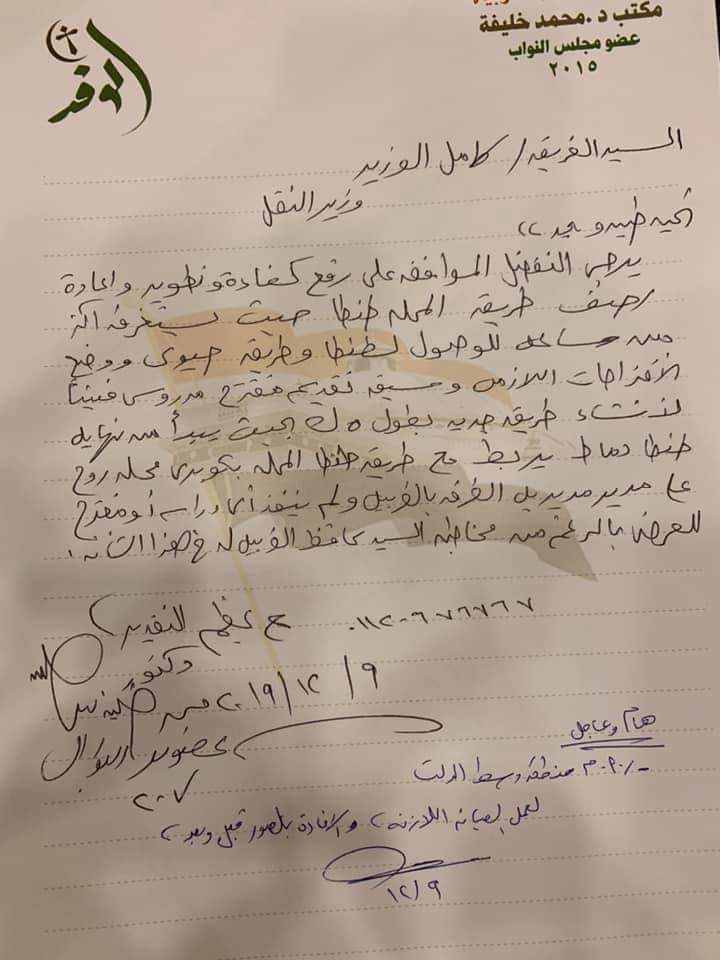 مكتب د. محمد خليفة
عضو مجلس النواب
٢٠١٥
الوفد
السيد الفريق / كامل الوزير
وزير النقل
تحيه طيبه وبعد ،،
يرجى التفضل الموافقه على رفع كفاءة وتطوير واعادة
رصف طريق المحله طنطا حيث يستغرق اكثر
من ساعه للوصول لطنطا وطريق حيوى ووضع
الاقتراحات اللازمه وسبق تقديم مقترح مدروس فنيتا
لانشاء طريق جديد بطول ٥ ك بحيث يبدأ من نهايه
طنطا دماط يربط مع طريق طنطا المحله بكوبرى محله روح
على مدير مديريه الطرق بالغربيه ولم ينفذ أى دراسه أو مقترح
للعرض بالرغم من مخاطبه السيد محافظ الغربيه له فى هذا الشأن
٠١١٢٠٦٧٦٧٦٧ مع عظيم التقدير
دكتور
٢٠١٩/١٢/٩
عضو مجلس النواب
٢٠٧
هام وعاجل
منطقه وسط الدلتا
لعمل الصيانه اللازمه ، والافادة بالصور قبل وبعد ،
١٢/٩